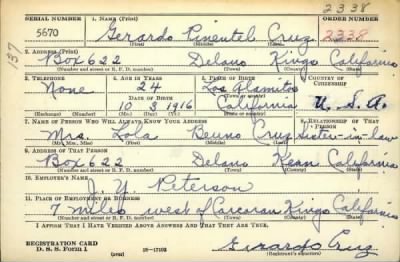 2338
SERIAL NUMBER 1. NAME (Print) ORDER NUMBER
5670 Gerardo Pimentel Cruz 2338
(First) (Middle) (Last)
137
2. ADDRESS (Print)
Box 622 Delano Kings California
(Number and street or R. F. D. number) (Town) (County) (State)
3. TELEPHONE 4. AGE IN YEARS 5. PLACE OF BIRTH 6. COUNTRY OF CITIZENSHIP
None 24 Los Alamitos
DATE OF BIRTH (Town or county)
10 3 1916 California U. S. A.
(Exchange) (Number) (Mo.) (Day) (Yr.) (State or country)
7. NAME OF PERSON WHO WILL ALWAYS KNOW YOUR ADDRESS 8. RELATIONSHIP OF THAT PERSON
Mrs. Lola Bueno Cruz Sister-in-law
(Mr., Mrs., Miss) (First) (Middle) (Last)
9. ADDRESS OF THAT PERSON
Box 622 Delano Kern California
(Number and street or R. F. D. number) (Town) (County) (State)
10. EMPLOYER'S NAME
J. Y. Peterson
11. PLACE OF EMPLOYMENT OR BUSINESS
7 miles west of Corcoran Kings California
(Number and street or R. F. D. number) (Town) (County) (State)
I AFFIRM THAT I HAVE VERIFIED ABOVE ANSWERS AND THAT THEY ARE TRUE.
REGISTRATION CARD
D. S. S. Form 1 16—17105 Gerardo Cruz
(Registrant's signature)